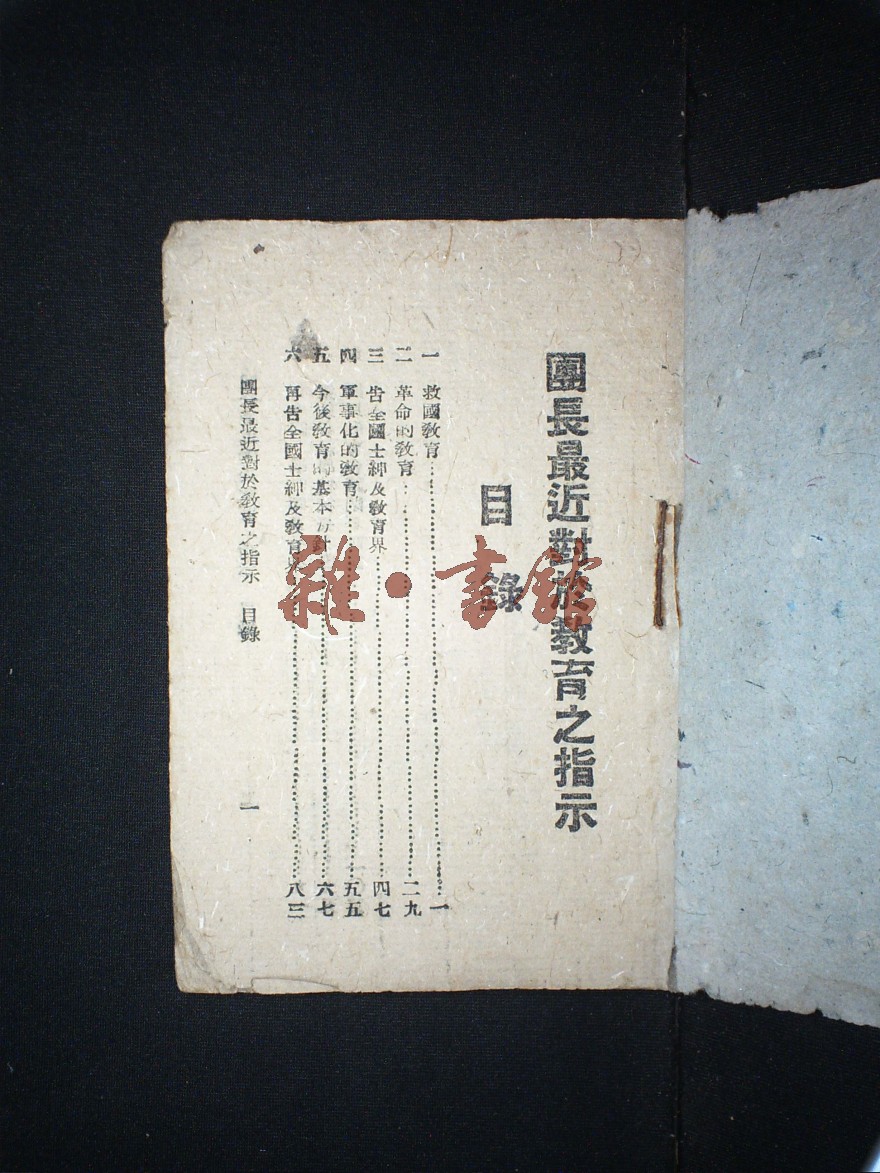 團長最近對於教育之指示
目錄
一 救國教育……一
二 革命的教育……二九
三 告全國士紳及敎育界……四七
四 軍事化的敎育……五五
五 今後敎育的基本方針……六七
六 再告全國士紳及敎育界……八三
團長最近對於敎育之指示 目錄
一
雜·書館